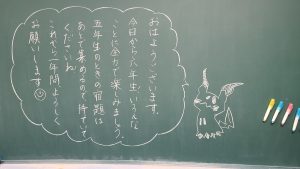 おはようございます。
今日から六年生！いろんな
ことに全力で楽しみましょう。
五年生のときの宿題は
あとで集めるので待っていて
くださいね。
これから一年間よろしく
お願いします